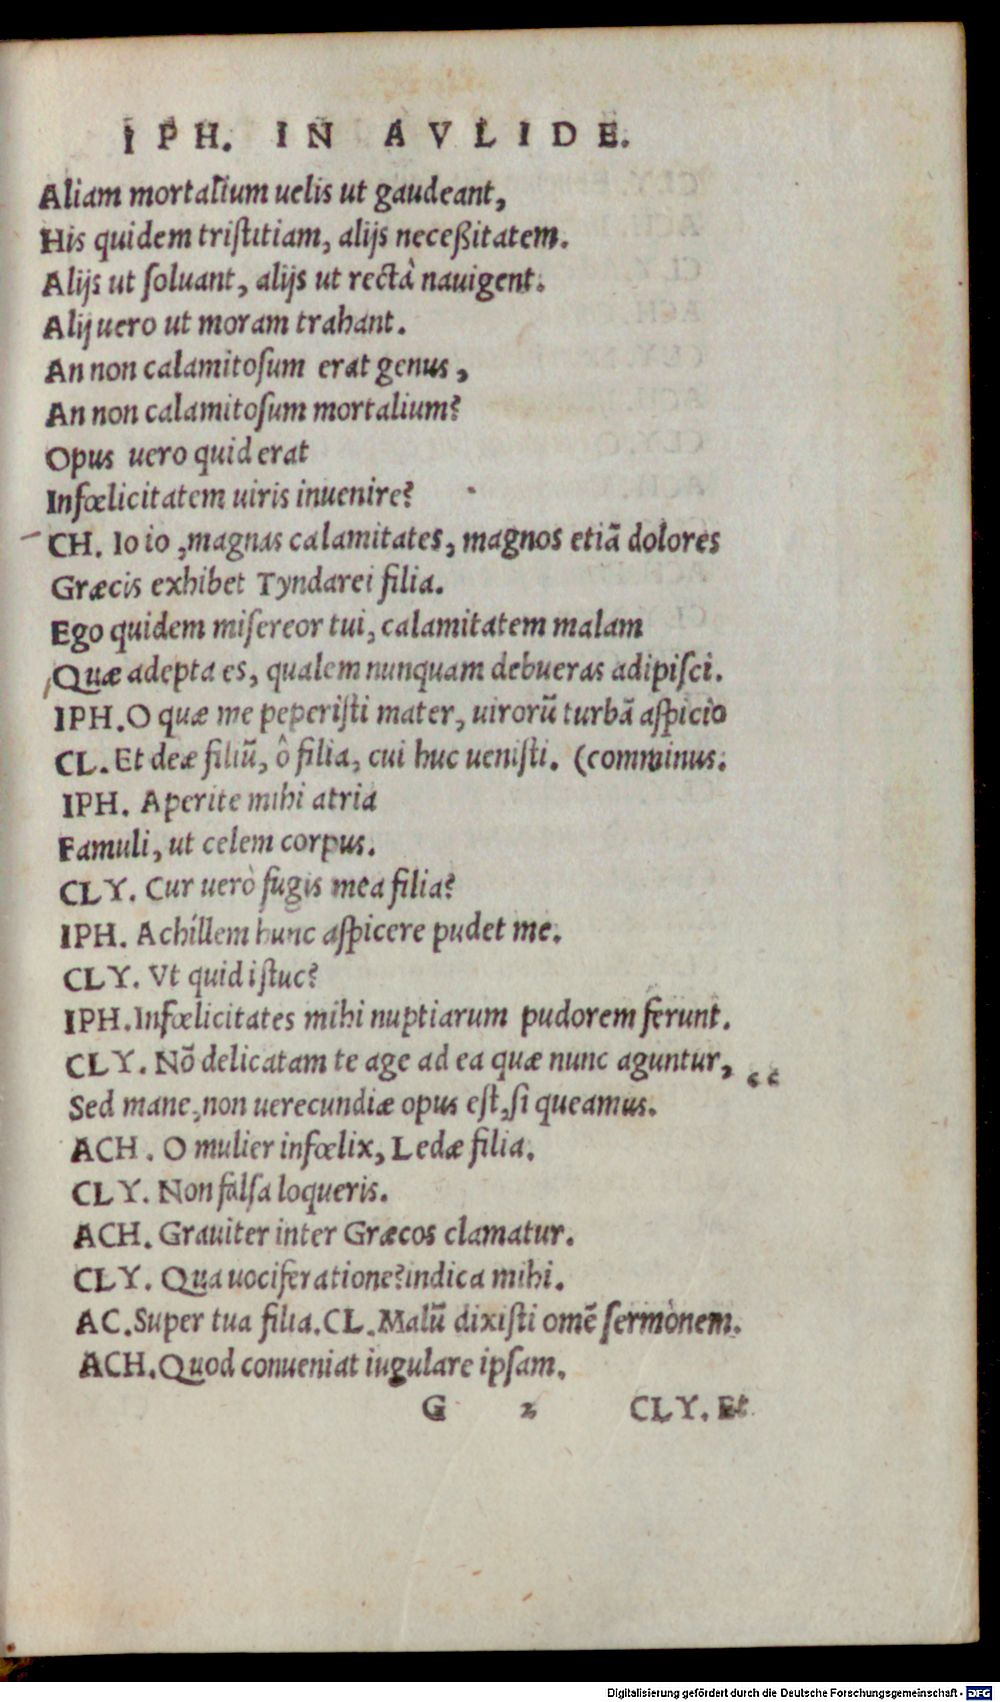 IPH. IN AVLIDE.
Aliam mortalium uelis ut gaudeant,
His quidem triſtitiam, alijs neceßitatem.
Alijs ut ſoluant, alijs ut rectà nauigent.
Alij uero ut moram trahant.
An non calamitoſum erat genus,
An non calamitoſum mortalium?
Opus uero quid erat
Infœlicitatem uiris inuenire?
CH. Io io, magnas calamitates, magnos etiã dolores
Græcis exhibet Tyndarei filia.
Ego quidem miſereor tui, calamitatem malam
Quæ adepta es, qualem nunquam debueras adipiſci.
IPH. O quæ me peperiſti mater, uirorũ turbã aſpicio
CL. Et deæ filiũ, ô filia, cui huc ueniſti. (comminus.
IPH. Aperite mihi atria
Famuli, ut celem corpus.
CLY. Cur uerò fugis mea filia?
IPH. Achillem hunc aſpicere pudet me.
CLY. Vt quid iſtuc?
IPH. Infœlicitates mihi nuptiarum pudorem ferunt.
CLY. Nõ delicatam te age ad ea quæ nunc aguntur, “
Sed mane, non uerecundiæ opus eſt, ſi queamus.
ACH. O mulier infœlix, Ledæ filia.
CLY. Non falſa loqueris.
ACH. Grauiter inter Græcos clamatur.
CLY. Qua uociferatione? indica mihi.
AC. Super tua filia. CL. Malũ dixiſti omẽ ſermonem.
ACH. Quod conueniat iugulare ipſam.
G 2 CLY. Et
Digitalisierung gefördert durch die Deutsche Forschungsgemeinschaft - DFG